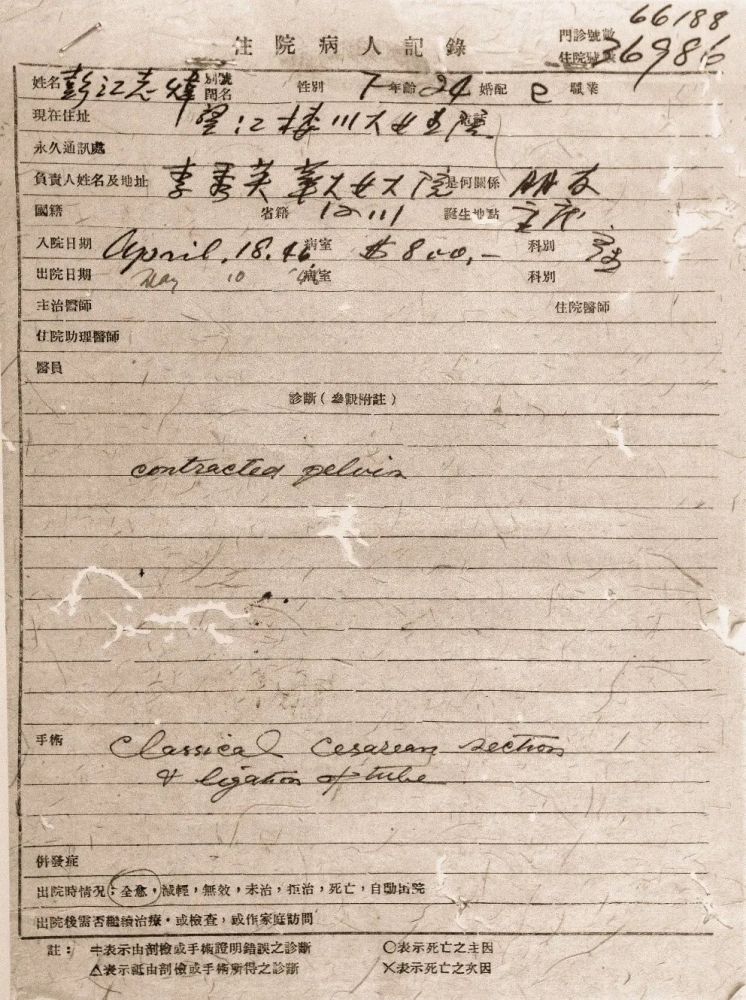 66188
住院病人記錄 門診號數
住院號數 369816
姓名 彭江志煒 別號 閨名 性別 年齡 24 婚配 職業
現在住址 望江樓川大女生院
永久通訊處
負責人姓名及地址 李秀英 華大女大院 是何關係 朋友
國籍 省籍 四川 誕生地點
入院日期 April. 18. 46 病室 $800.- 科別
出院日期 May 10 '46 病室 科別
主治醫師 住院醫師
住院助理醫師
醫員
診斷(參觀附註)
contracted pelvis
手術 Classical Cesarean section
& ligation of tube
併發症
出院時情况:全愈,減輕,無效,未治,拒治,死亡,自動出院
出院後需否繼續治療,或檢查,或作家庭訪問
註: 表示由剖檢或手術證明錯誤之診斷 ○表示死亡之主因
△表示祇由剖檢或手術所得之診斷 ×表示死亡之次因